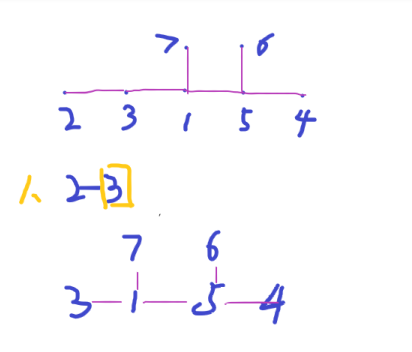 7 6
2 3 1 5 4
1、 2-3
7 6
3 1 5 4